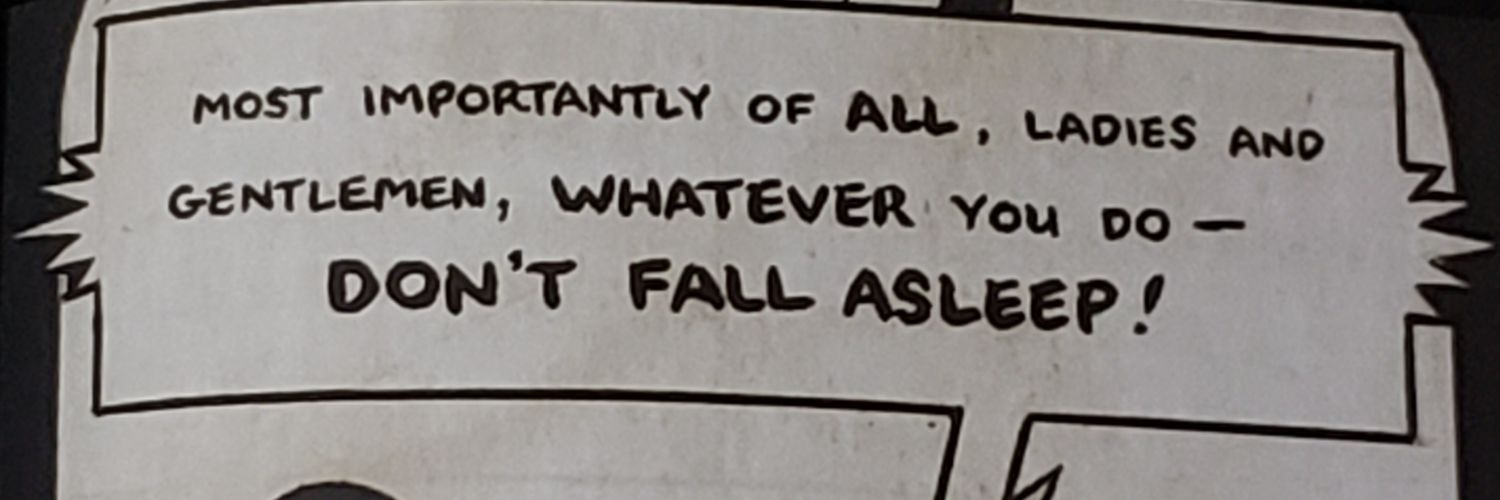 MOST IMPORTANTLY OF ALL, LADIES AND
GENTLEMEN, WHATEVER YOU DO —
DON'T FALL ASLEEP!